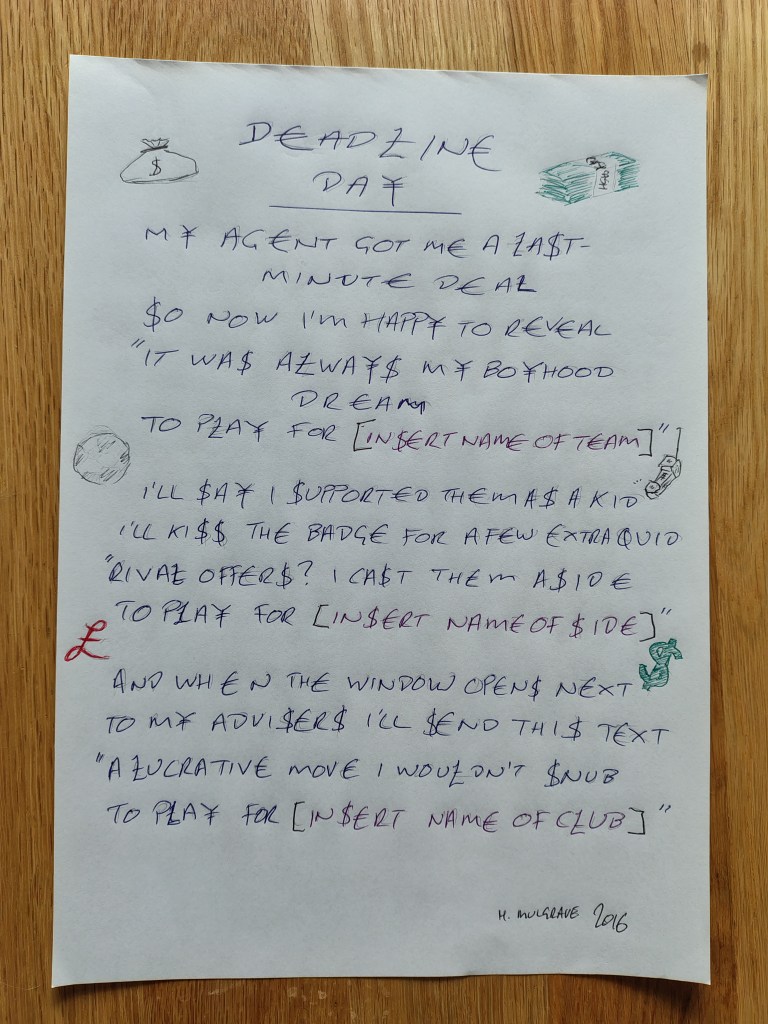 $
D€AD£IN€
DA¥
M¥ AG€NT GOT M€ A £A$T-
MINUT€ D€A£
$O NOW I'M HAPP¥ TO R€V€AL
"IT WA$ A£WA¥$ M¥ BO¥HOOD
DR€AM
TO P£A¥ FOR [IN$€RT NAM€ OF T€AM]"
I'LL $A¥ I $UPPORT€D TH€M A$ A KID
I'LL KI$$ TH€ BADG€ FOR A F€W €XTRA QUID
"RIVA£ OFF€R$? I CA$T TH€M A$ID€
TO P£A¥ FOR [IN$€RT NAM€ OF $ID€]"
£
$
AND WH€N TH€ WINDOW OP€N$ N€XT
TO M¥ ADVI$€R$ I'LL $€ND THI$ T€XT
"A £UCRATIV€ MOV€ I WOU£DN'T $NUB
TO P£A¥ FOR [IN$€RT NAM€ OF C£UB]"
H. MULGRAVE 2016